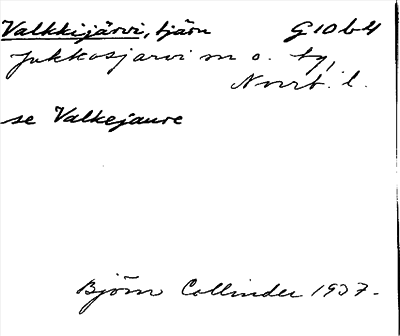 Valkkijärvi, tjärn G10b4
Jukkasjärvi sn o. tg,
Norrb. l.
se Valkejaure
Björn Collinder 1937.